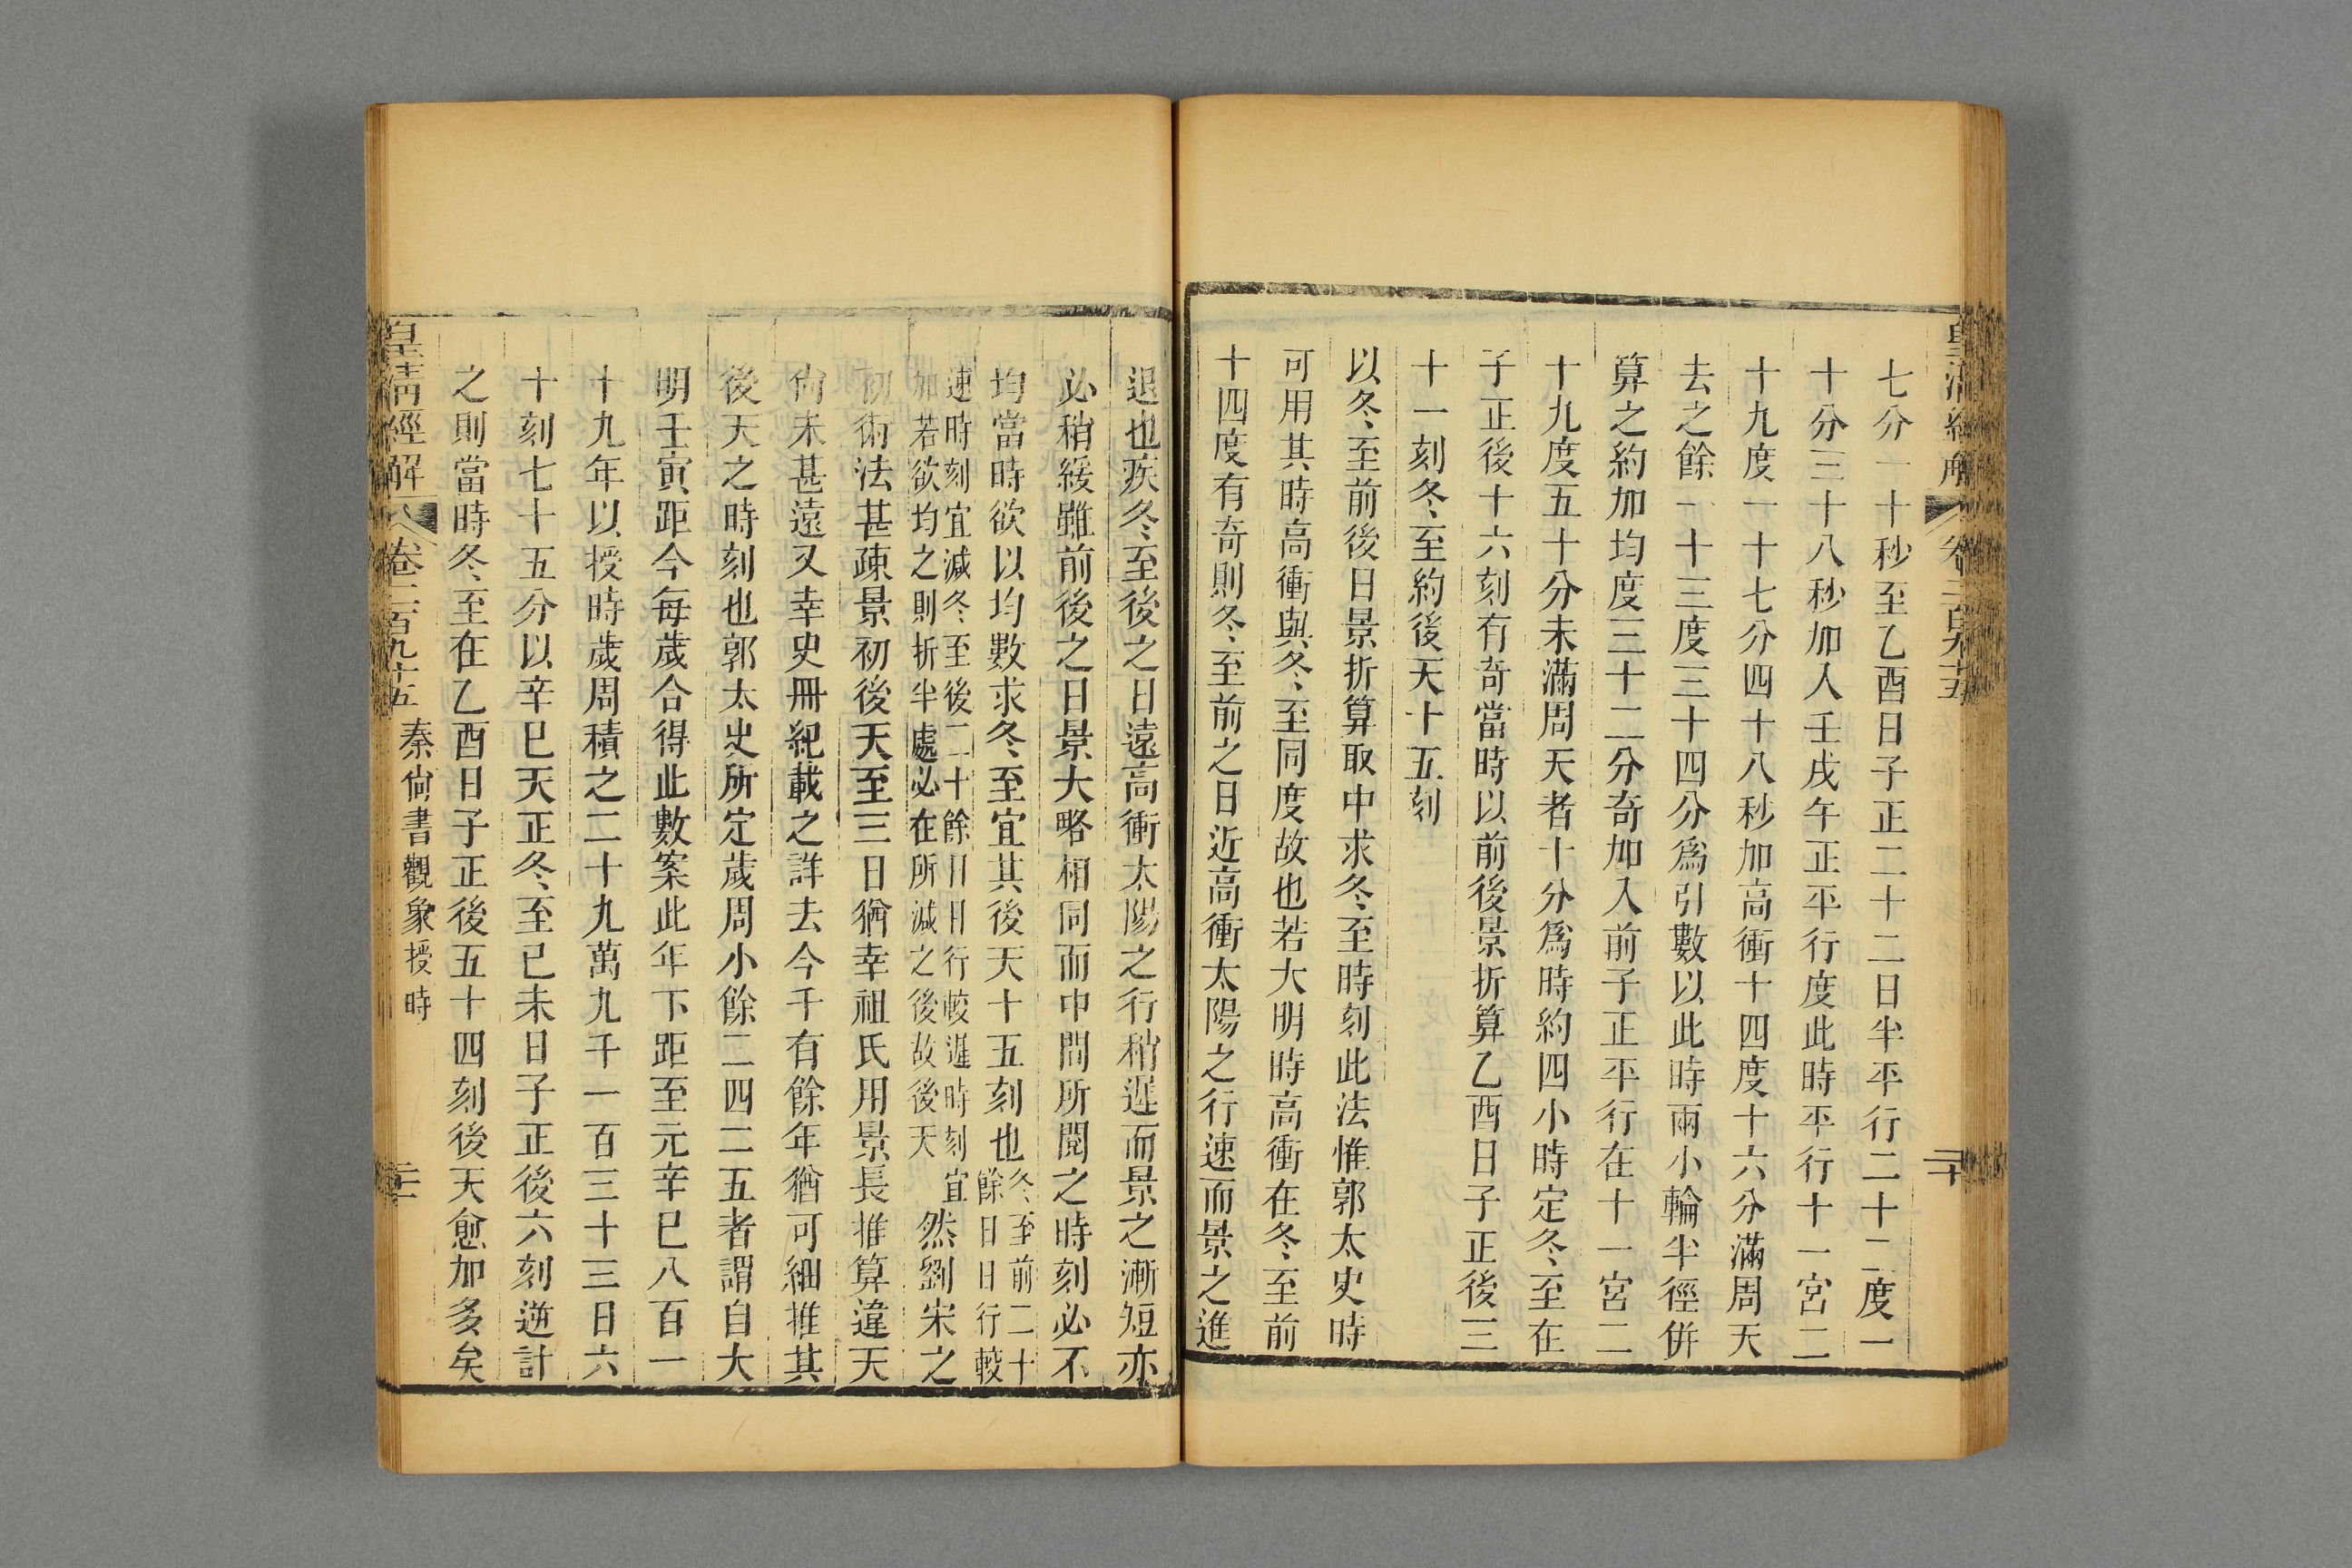 皇清經解 卷二百九十五 二十
七分一十秒至乙酉日子正二十二日半平行二十二度一
十分三十八秒加入壬戌午正平行度此時平行十一宮二
十九度一十七分四十八秒加高衝十四度十六分滿周天
去之餘一十三度三十四分爲引數以此時兩小輪半徑併
算之約加均度三十二分奇加入前子正平行在十一宮二
十九度五十分未滿周天者十分爲時約四小時定冬至在
子正後十六刻有奇當時以前後景折算乙酉日子正後三
十一刻冬至約後天十五刻
以冬至前後日景折算取中求冬至時刻此法惟郭太史時
可用其時高衝與冬至同度故也若大明時高衝在冬至前
十四度有奇則冬至前之日近高衝太陽之行速而景之進
退也疾冬至後之日遠高衝太陽之行稍遲而景之漸短亦
必稍緩雖前後之日景大略相同而中間所閱之時刻必不
均當時欲以均數求冬至宜其後天十五刻也冬至前二十餘日日行較
速時刻宜減冬至後二十餘日日行較遲時刻宜加若欲均之則折半處必在所減之後故後天然劉宋之
初術法甚疎景初後天至三日猶幸祖氏用景長推算違天
尙未甚遠又幸史冊紀載之詳去今千有餘年猶可細推其
後天之時刻也郭太史所定歲周小餘二四二五者謂自大
明壬寅距今每歲合得此數案此年下距至元辛巳八百一
十九年以授時歲周積之二十九萬九千一百三十三日六
十刻七十五分以辛巳天正冬至已未日子正後六刻逆計
之則當時冬至在乙酉日子正後五十四刻後天愈加多矣
皇清經解 卷二百九十五 秦尙書觀象授時 二十一